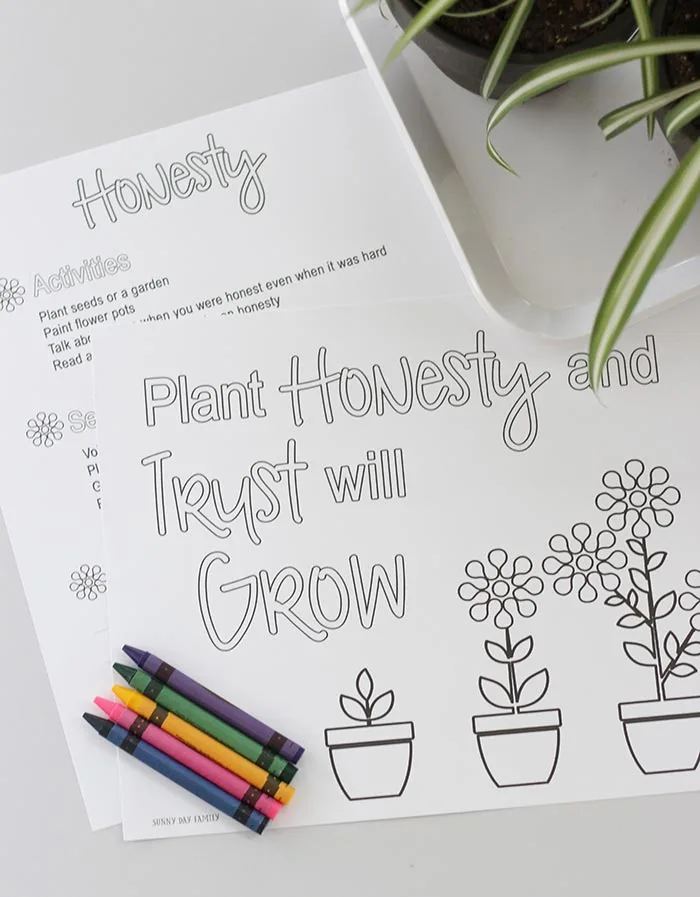 Honesty
Activities
Plant seeds or a garden
Paint flower pots
when you were honest even when it was hard
Read a honesty
Plant Honesty and
Trust will
Grow
SUNNY DAY FAMILY